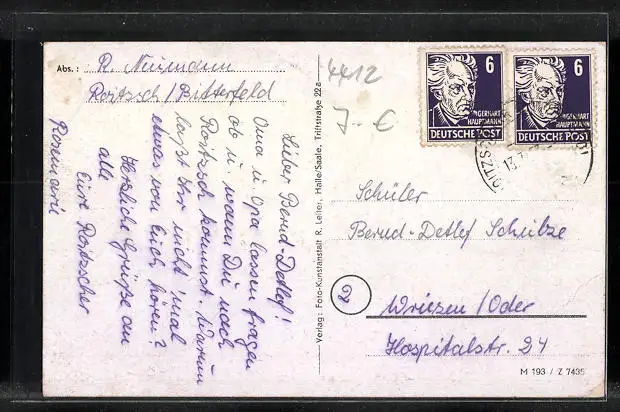 Abs.: R. Neumann
Roitzsch/Bitterfeld
Lieber Bernd-Detlef!
Oma u. Opa lassen fragen
ob u. wann Du nach
Roitzsch kommst. Warum
laßt Ihr nicht 'mal
etwas von Euch hören?
Herzliche Grüße an
alle
Eure Roitzscher
Rosemarie
Verlag: Foto-Kunstanstalt R. Leiter, Halle/Saale, Triftstraße 22a
4412
7.- €
6
GERHART
HAUPTMANN
DEUTSCHE POST
6
GERHART
HAUPTMANN
DEUTSCHE POST
Schüler
Bernd-Detlef Schulze
Wriezen/Oder
Hospitalstr. 24
M 193 / Z 7435